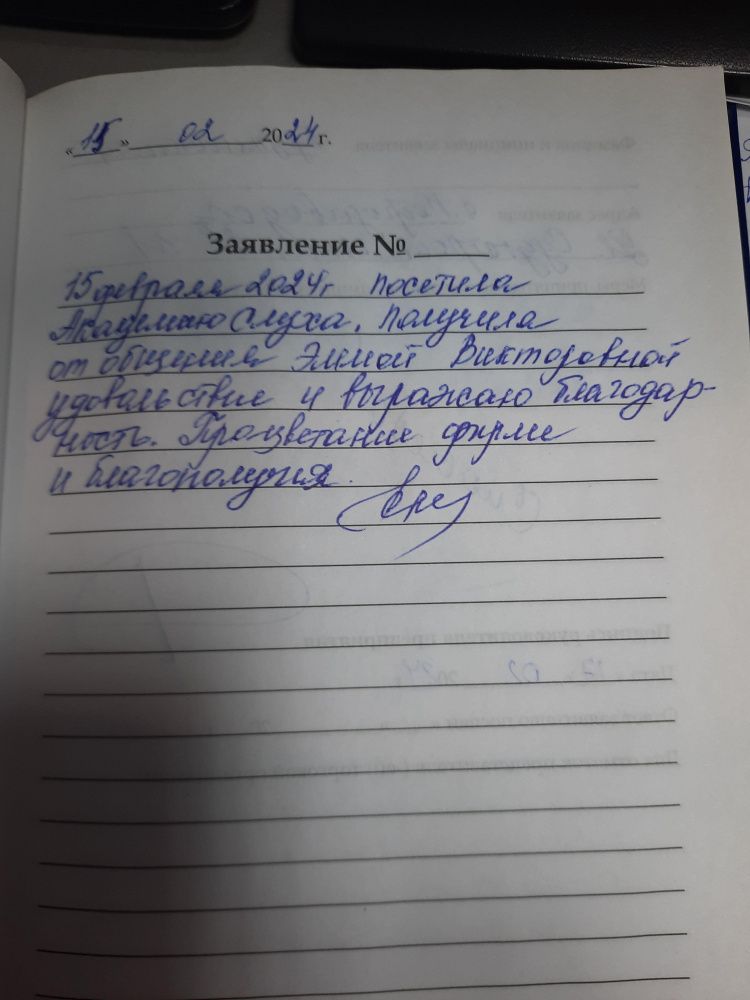 «15» 02 2024 г.
Заявление №
15 февраля 2024г посетила
Академию Слуха. Получила
от общения Эммой Викторовной
удовольствие и выражаю благодар-
ность. Процветание фирме
и благополучия.